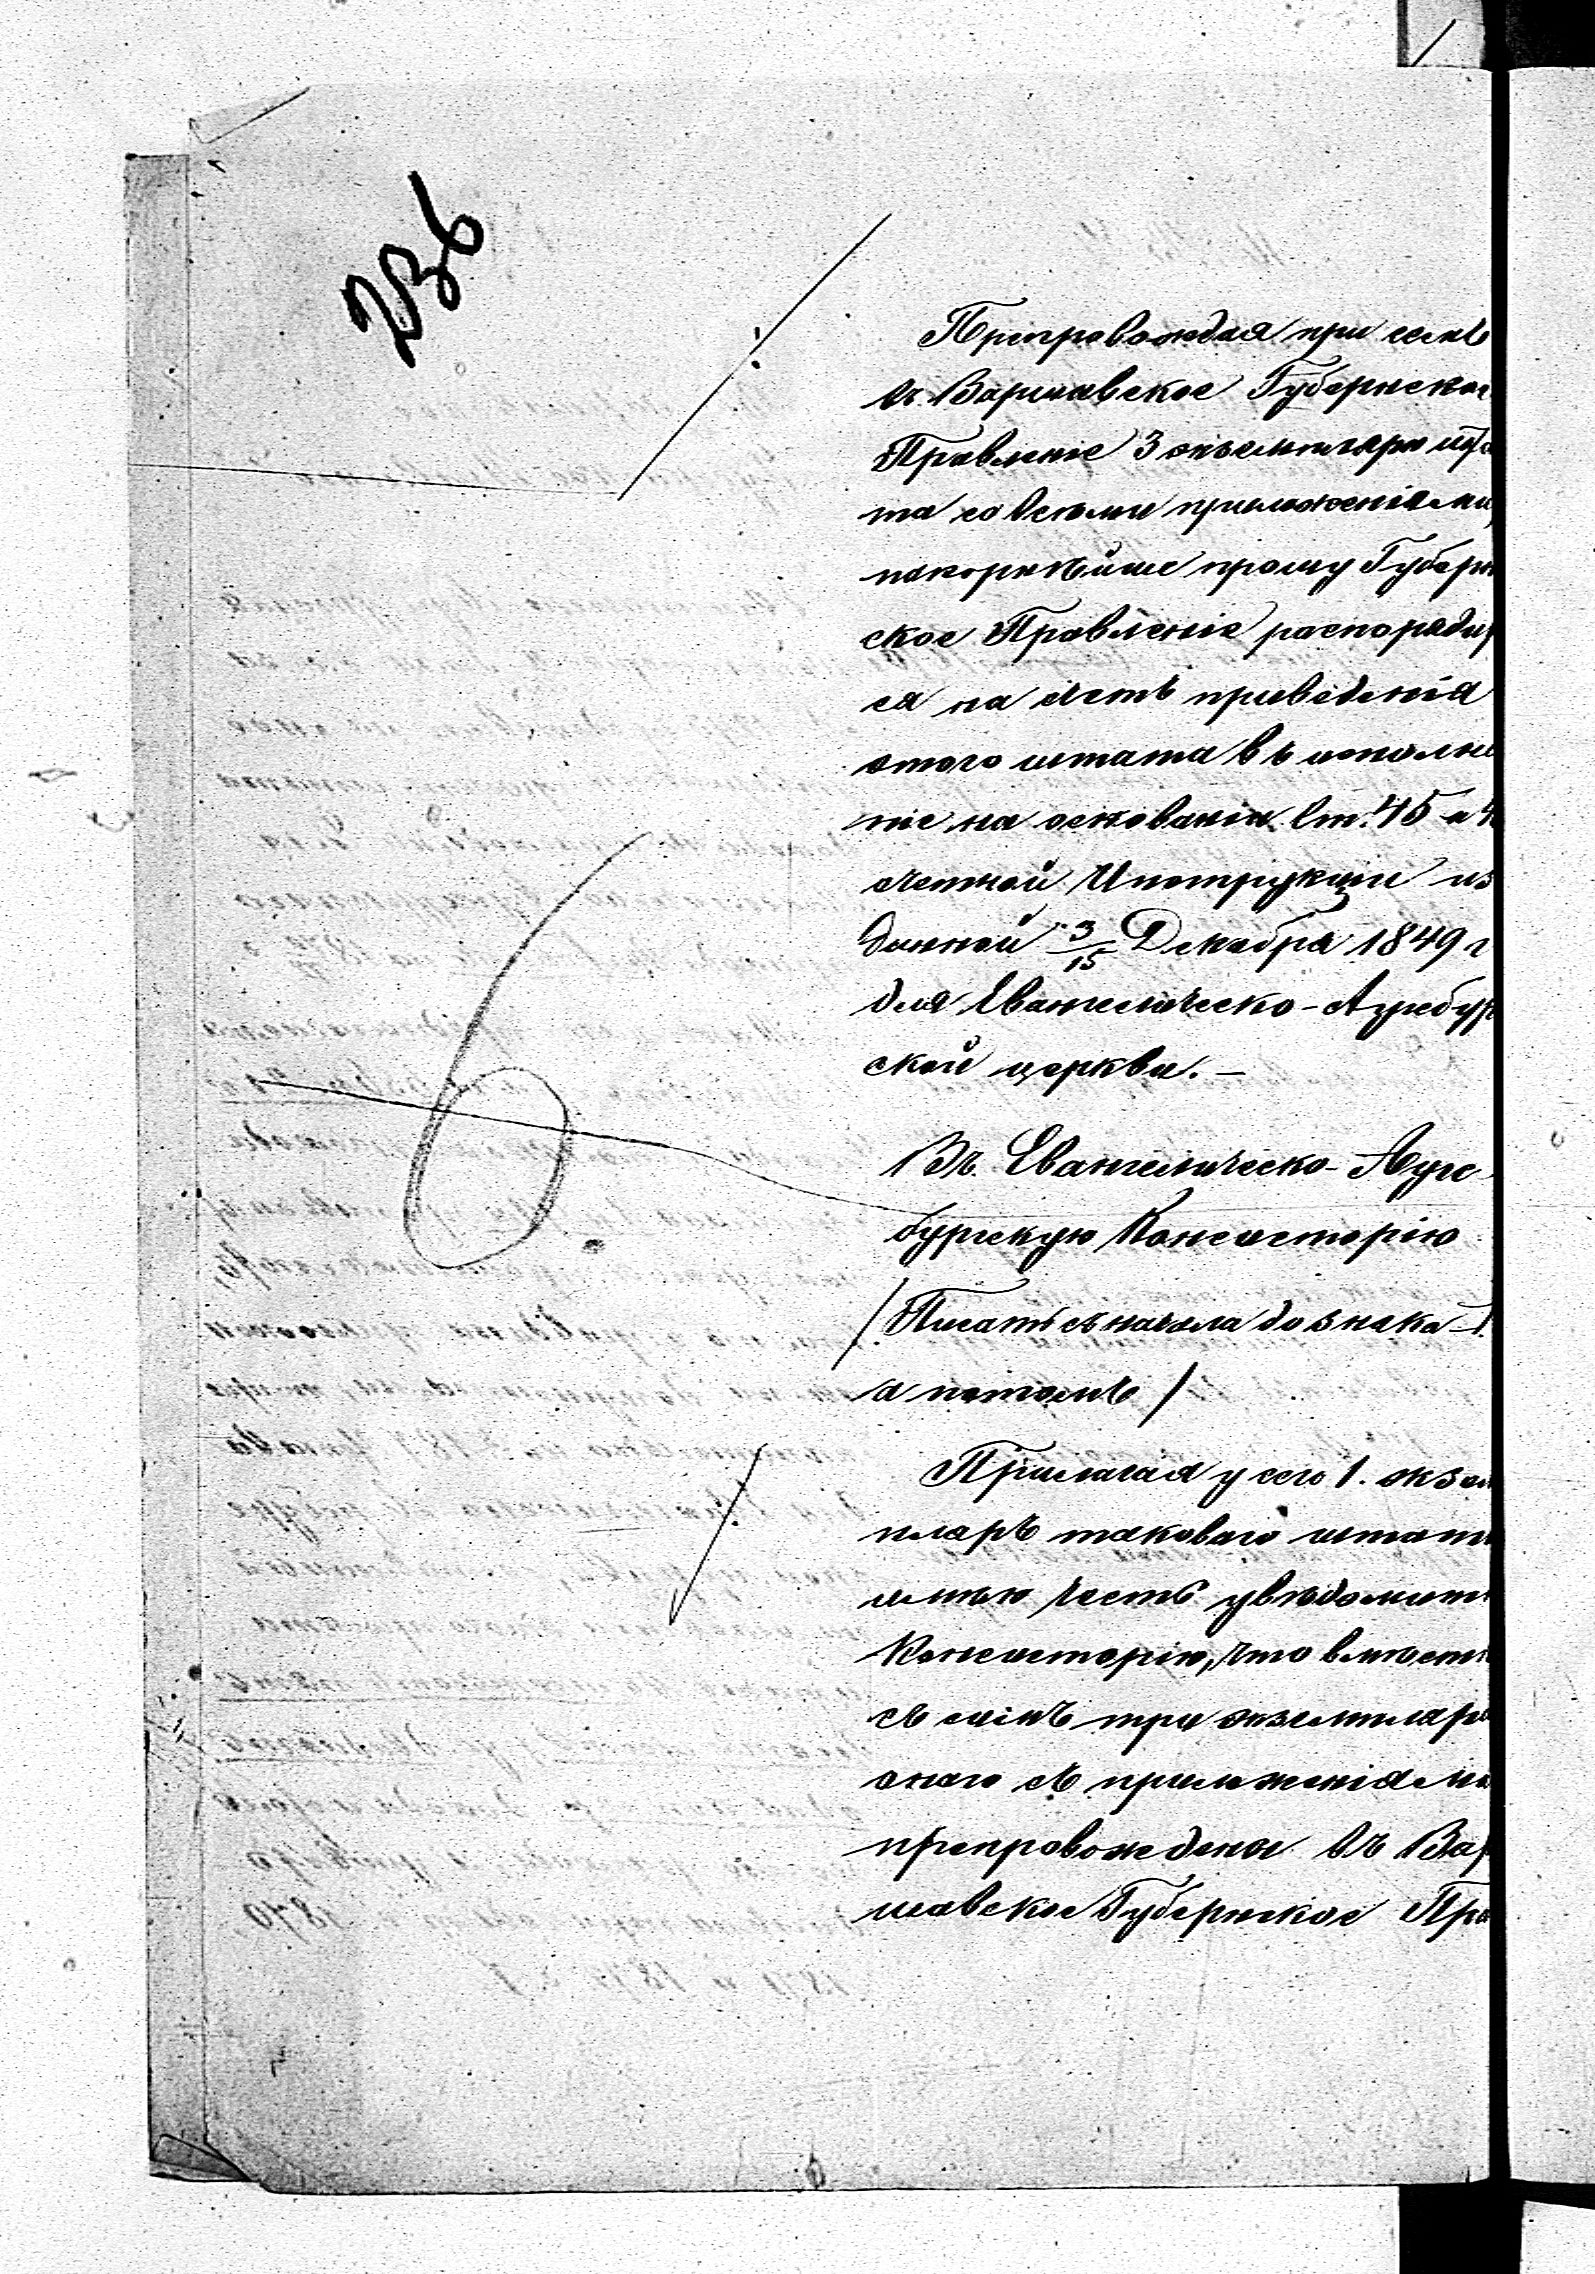 236
Препровождая при семъ
въ Варшавское Губернское
Правленіе 3 экземпляра шта
та со всеми приложеніями,
покорнѣйше прошу Губерн
ское Правленіе распорядит
ся на счетъ приведенія
этого штата въ исполне
ніе на основаніи ст. 45 и 4
счетной Инструкціи из
данной 3/15 Декабря 1849 г
для Евангелическо-Аугсбург
ской церкви. —
Въ Евангелическо-Аугс
бургскую Консисторію
/Писать съ начала до знака
а потомъ/
Прилагая у сего 1. экзем
пляръ таковаго штата
имѣю честь увѣдомить
Консисторію, что вмѣстѣ
съ симъ три экземпляра
онаго съ приложеніями
препровождены въ Вар
шавское Губернское Пра